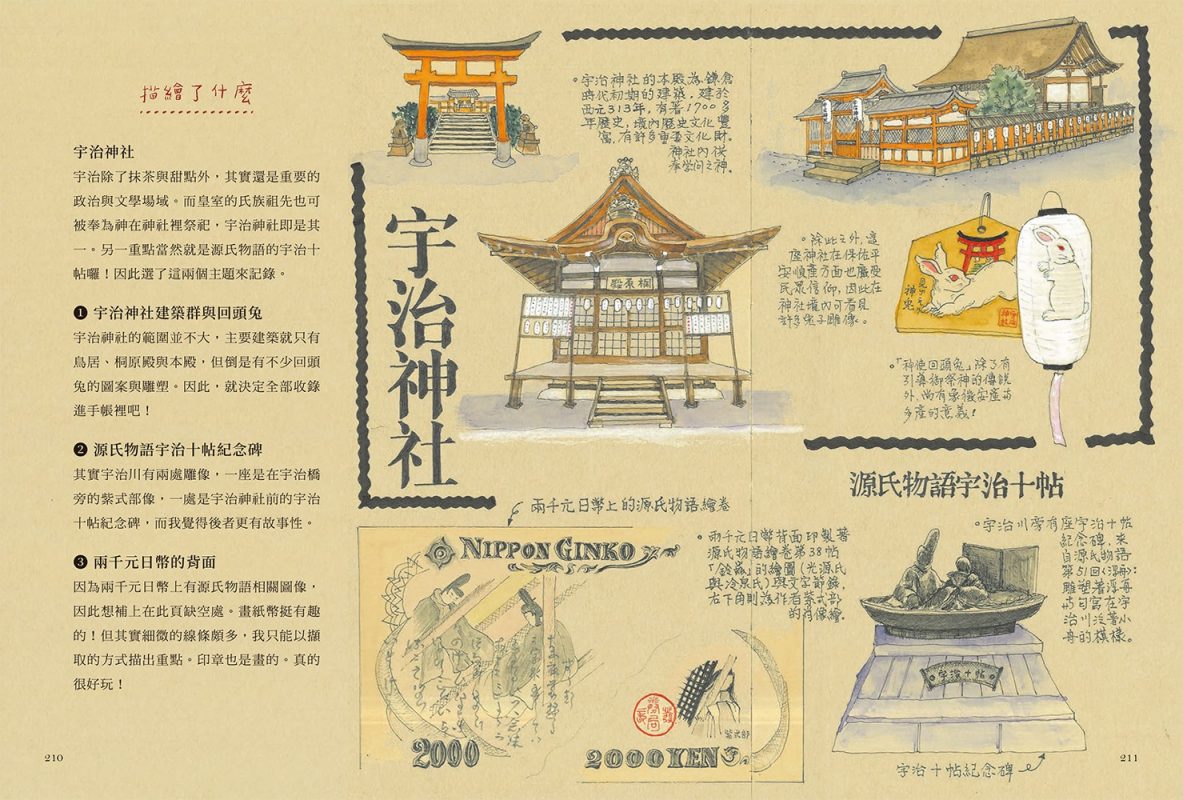 描繪了什麼
宇治神社
宇治除了抹茶與甜點外，其實還是重要的
政治與文學場域。而皇室的氏族祖先也可
被奉為神在神社裡祭祀，宇治神社即是其
一。另一重點當然就是源氏物語的宇治十
帖囉！因此選了這兩個主題來記錄。
❶ 宇治神社建築群與回頭兔
宇治神社的範圍並不大，主要建築就只有
鳥居、桐原殿與本殿，但倒是有不少回頭
兔的圖案與雕塑。因此，就決定全部收錄
進手帳裡吧！
❷ 源氏物語宇治十帖紀念碑
其實宇治川有兩處雕像，一座是在宇治橋
旁的紫式部像，一處是宇治神社前的宇治
十帖紀念碑，而我覺得後者更有故事性。
❸ 兩千元日幣的背面
因為兩千元日幣上有源氏物語相關圖像，
因此想補上在此頁缺空處。畫紙幣挺有趣
的！但其實細微的線條頗多，我只能以擷
取的方式描出重點。印章也是畫的。真的
很好玩！
210
宇治神社
宇治神社的本殿為鎌倉
時代初期的建築，建於
西元313年，有著1700多
年歷史，境內歷史文化豐
富，有許多重要文化財。
神社內供
奉學問之神。
桐原殿
除此之外，這
座神社在保佑平
安順產方面也廣受
民眾信仰，因此在
神社境內可看見
許多兔子雕像。
「神使回頭兔」除了有
引導御祭神的傳說
外，尚有象徵安產與
多產的意義！
兩千元日幣上的源氏物語繪卷
NIPPON GINKO
2000
2000 YEN
紫式部
兩千元日幣背面印製著
源氏物語繪卷第38帖
「鈴蟲」的繪圖（光源氏
與冷泉氏）與文字節錄，
右下角則為作者紫式部
的肖像繪。
源氏物語宇治十帖
宇治川旁有座宇治十帖
紀念碑，來
自源氏物語
第51回《浮舟》：
雕塑著浮舟
與匂宮在宇
治川泛著小
舟的模樣。
宇治十帖
宇治十帖紀念碑
211